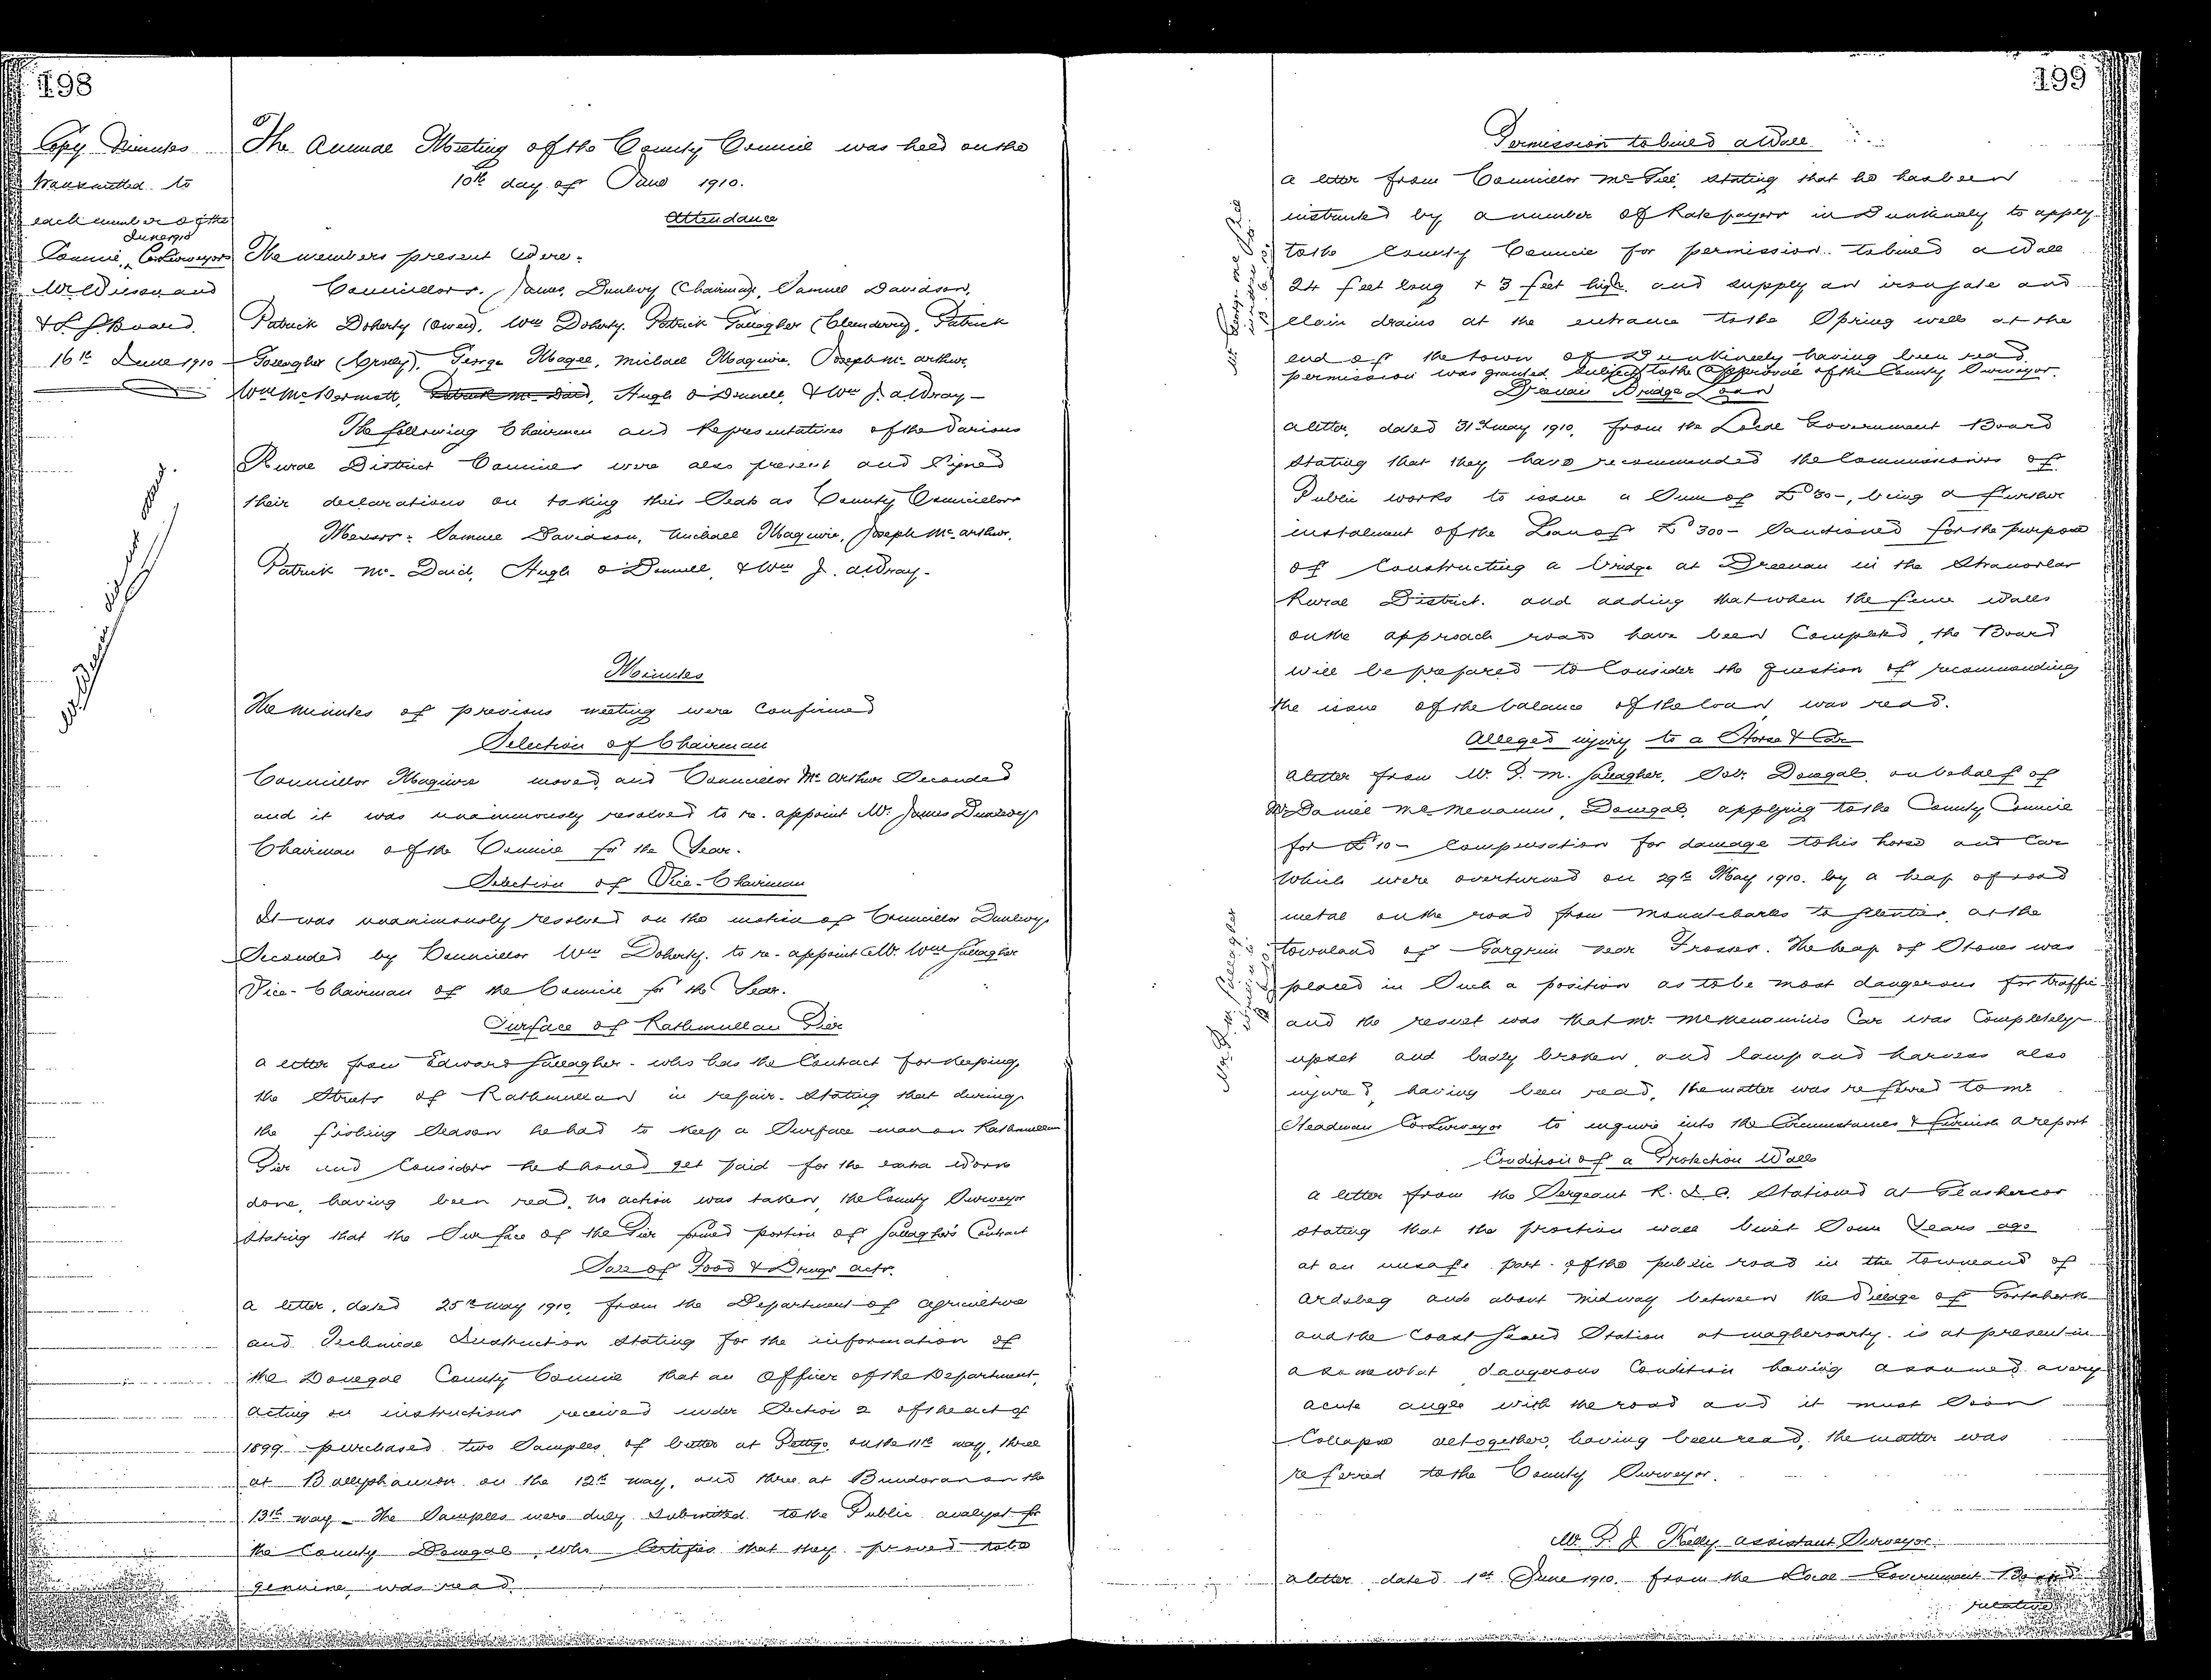 198
Copy Minutes
transmitted to
each member of the
June 1910
Council, Co Surveyors
Mr Wilson and
L G Board.
16th June 1910
The Annual Meeting of the County Council was held on the
10th day of June 1910.
Attendance
The members present were:
Councillors. James Dunlevy (Chairman), Samuel Davidson,
Patrick Doherty (Owen), Wm Doherty, Patrick Gallagher (Clenderry), Patrick
Gallagher, George Magee, Michael Maguire, Joseph McArthur,
Wm McDermott, Patrick McDaid, Hugh O'Donnell, & Wm J. Aldray
The following Chairmen and Representatives of the Various
Rural District Councils were also present and Signed
their declarations on taking their Seats as County Councillors
Messrs: Samuel Davidson, Michael Maguire, Joseph McArthur,
Patrick McDaid, Hugh O'Donnell, & Wm J. Aldray.
Minutes
The minutes of previous meeting were Confirmed
Selection of Chairman
Councillor Maguire moved and Councillor McArthur Seconded
and it was unanimously resolved to re-appoint Mr. James Dunlevy
Chairman of the Council for the Year.
Selection of Vice-Chairman
It was unanimously resolved on the motion of Councillor Dunlevy
Seconded by Councillor Wm Doherty, to re-appoint Mr. Wm Gallagher
Vice-Chairman of the Council for the Year.
Surface of Rathmullan Pier
A letter from Edward Gallagher, who has the Contract for keeping
the Streets of Rathmullan in repair, Stating that during
the fishing Season he had to keep a Surface man on Rathmullan
Pier and Considers he should get paid for the extra work
done, having been read, no action was taken, the County Surveyor
Stating that the Surface of the Pier formed portion of Gallagher's Contract
Sale of Food & Drugs Acts.
A letter, dated 25th May 1910, from the Department of Agriculture
and Technical Instruction Stating for the information of
the Donegal County Council that an Officer of the Department,
Acting on instructions received under Section 2 of the Act of
1899 purchased two Samples of butter at Pettigo on the 11th May, three
at Ballyshannon on the 12th May, and three at Bundoran on the
13th May. The Samples were duly Submitted to the Public Analyst for
the County Donegal, who Certifies that they proved to be
genuine, was read.
199
Permission to build a Wall
A letter from Councillor McGill, Stating that he has been
instructed by a number of Ratepayers in Dunkineely to apply
to the County Council for permission to build a Wall
24 feet long & 3 feet high, and supply an iron gate and
clean drains at the entrance to the Spring well at the
end of the town of Dunkineely having been read
permission was granted Subject to the approval of the County Surveyor.
Dreenan Bridge Loan
A letter, dated 31st May 1910, from the Local Government Board
Stating that they have recommended the Commissioners of
Public works to issue a Sum of £30-, being a further
instalment of the Loan of £300- Sanctioned for the purpose
of Constructing a bridge at Dreenan in the Stranorlar
Rural District, and adding that when the fence walls
on the approach roads have been Completed, the Board
will be prepared to Consider the question of recommending
the issue of the balance of the loan, was read.
Alleged injury to a Horse & Car
A letter from Mr. P. M. Gallagher, Solr. Donegal, on behalf of
Mr Daniel McMenamin, Donegal, applying to the County Council
for £10- Compensation for damage to his horse and Car
Which were overturned on 29th May 1910, by a heap of road
metal on the road from Mountcharles to Glenties, at the
townland of Gargrim near Frosses. The heap of Stones was
placed in Such a position as to be most dangerous for traffic
and the result was that Mr. McMenamin's Car was Completely
upset and badly broken, and lamp and harness also
injured, having been read, the matter was referred to Mr
Steadman Co Surveyor to inquire into the Circumstances & furnish a report
Condition of a Protection Wall
A letter from the Sergeant R. I. C. Stationed at Glashercoo
Stating that the protection wall built Some Years ago
at an unsafe part of the public road in the townland of
Ardsbeg and about midway between the Village of Gortahork
and the Coast Guard Station at Magheroarty, is at present in
a somewhat dangerous Condition having assumed a very
acute angle with the road and it must Soon
Collapse altogether, having been read, the matter was
referred to the County Surveyor.
Mr P. J Kelly Assistant Surveyor
A letter, dated 1st June 1910, from the Local Government Board
relative